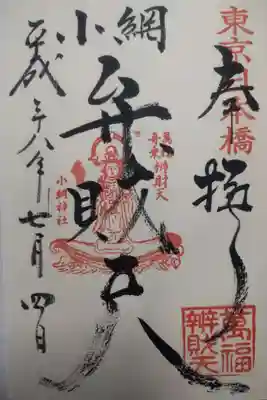 東京日本橋
奉拝
小網
弁財天
萬福舟乗
辨財天
小網神社
萬福
辨財天
平成二十八年七月四日